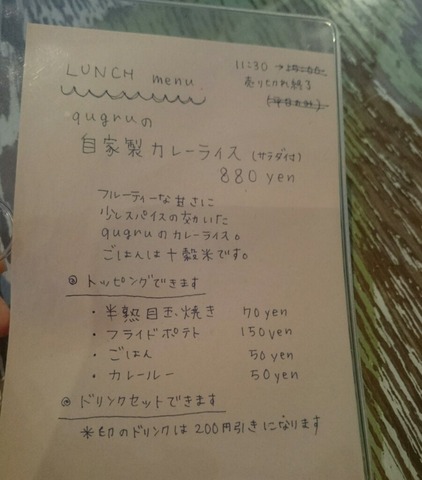 LUNCH menu
11:30 →
売り切れ終了
qugruの
自家製カレーライス（サラダ付）
880 yen
フルーティーな甘さに
少しスパイスの効いた
qugruのカレーライス。
ごはんは十穀米です。
◎トッピングできます
・半熟目玉焼き 70 yen
・フライドポテト 150 yen
・ごはん 50 yen
・カレールー 50 yen
◎ドリンクセットできます
※印のドリンクは200円引きになります